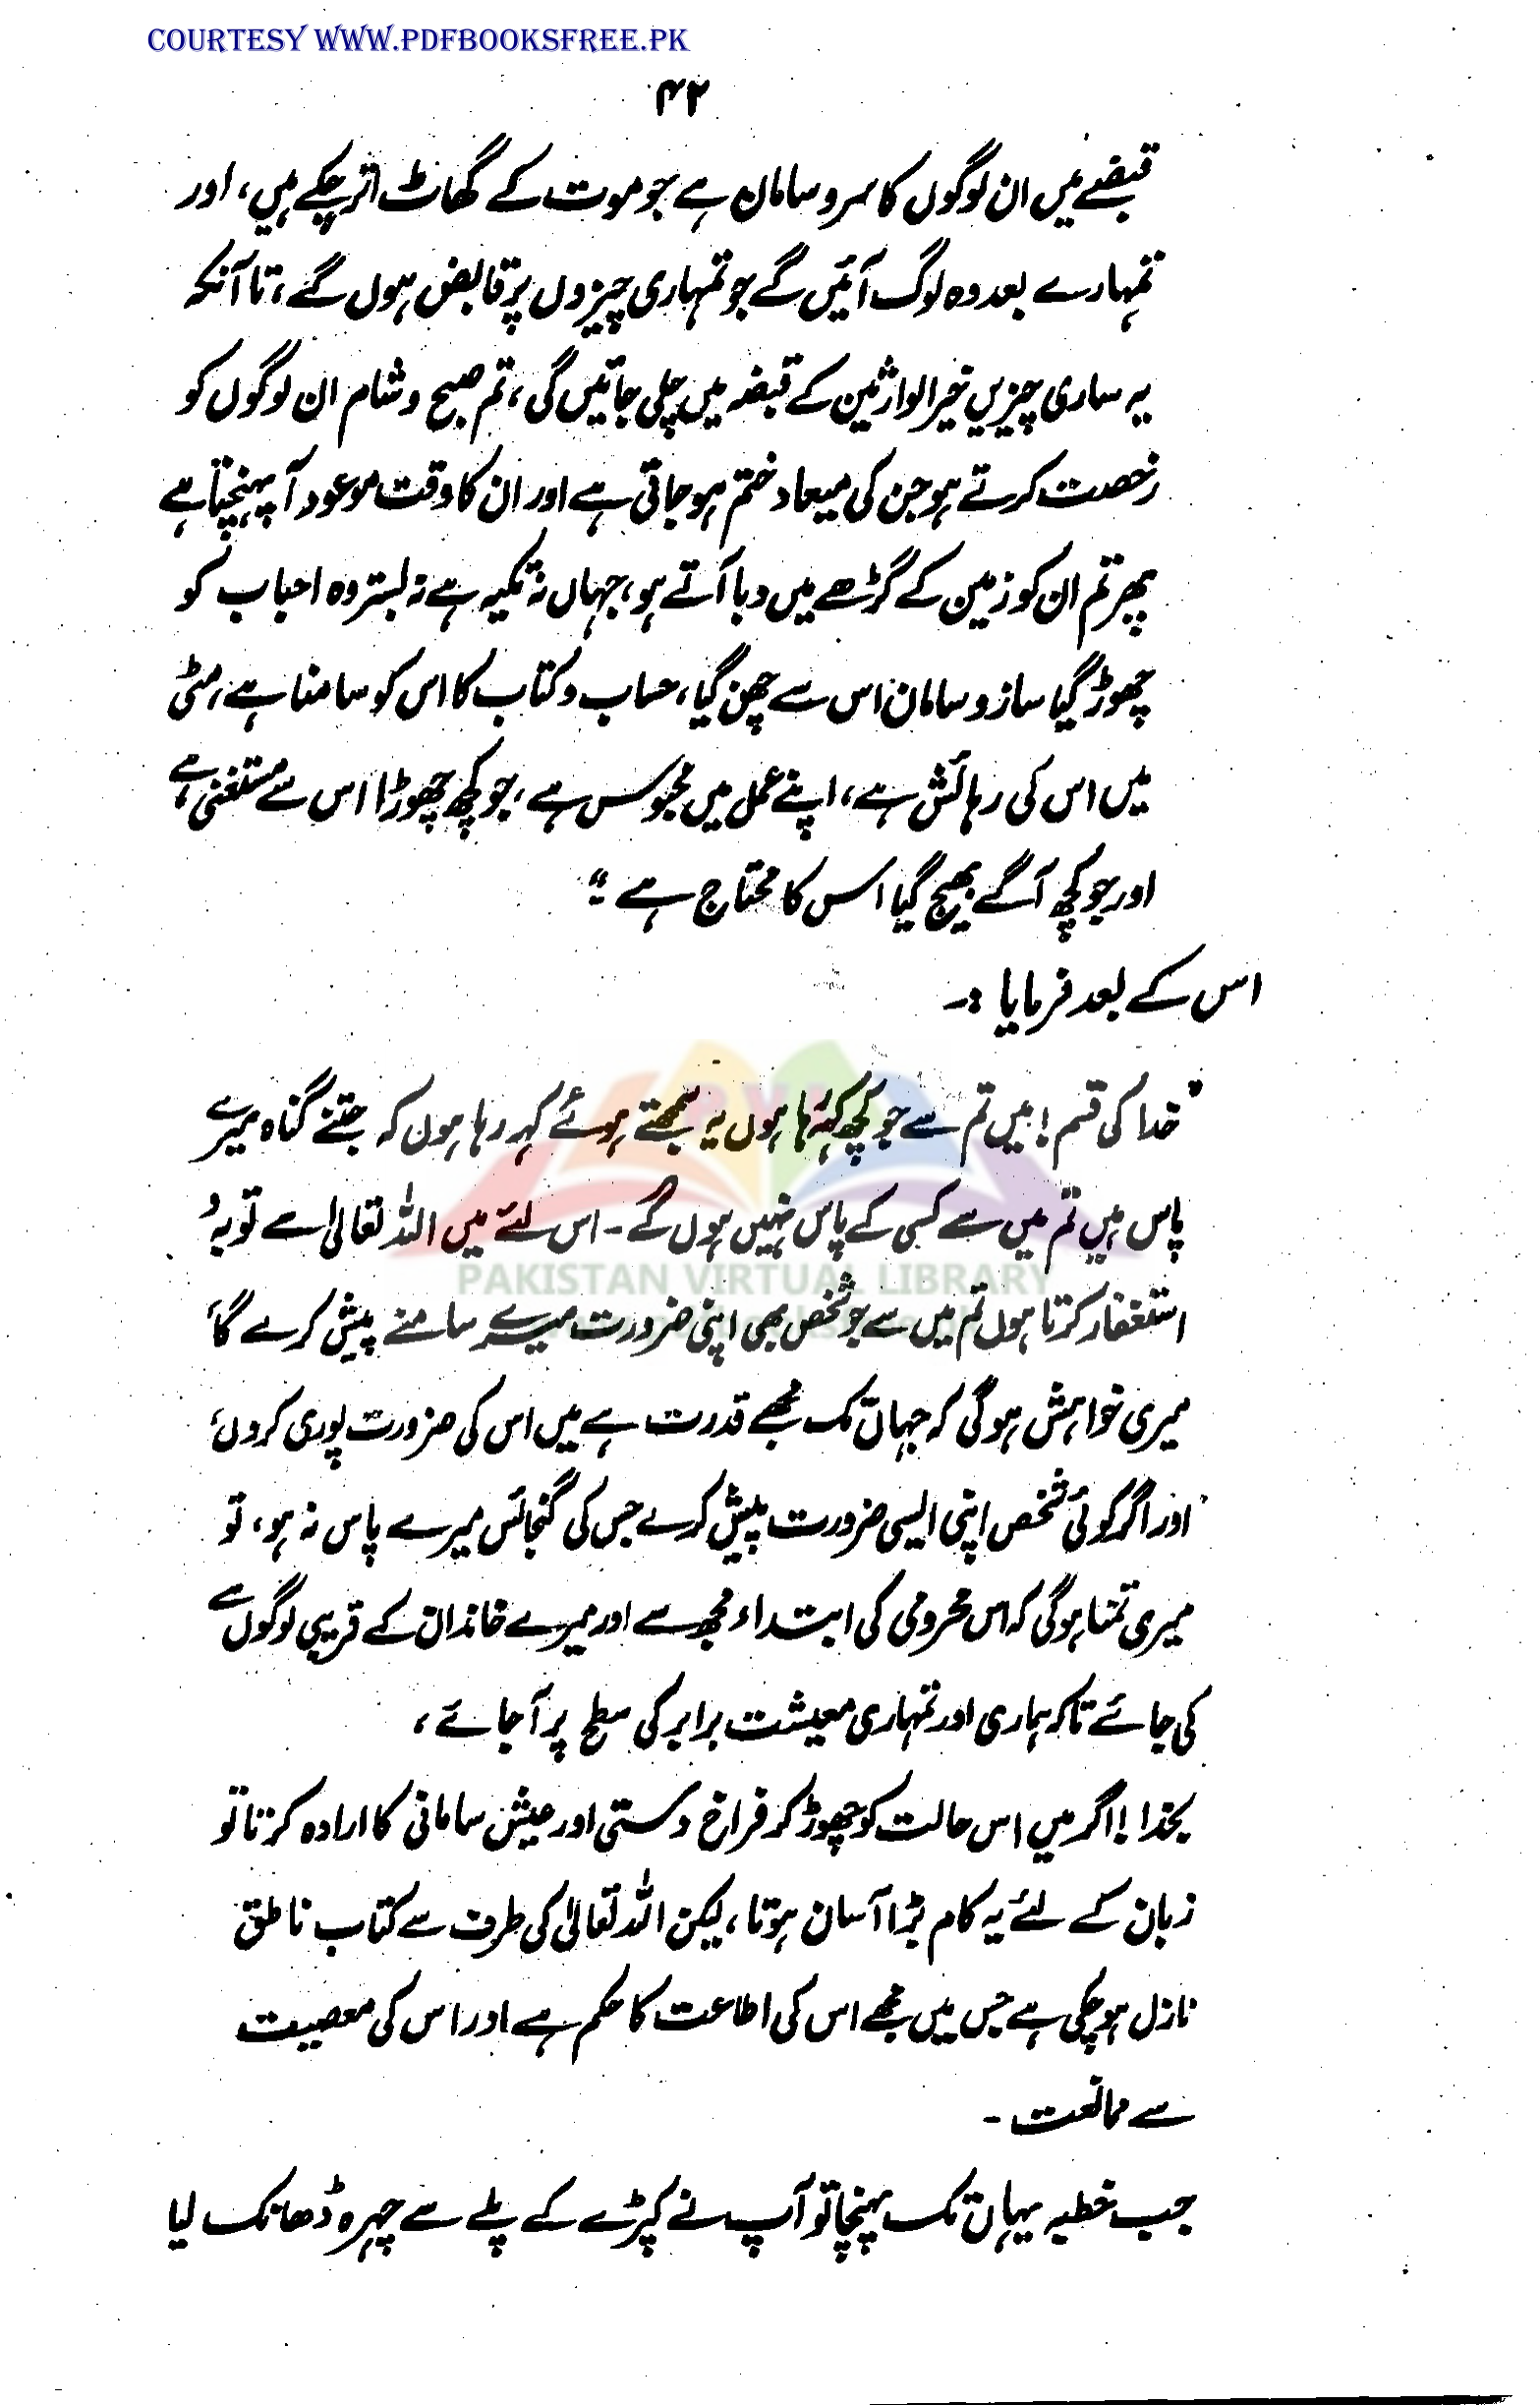 COURTESY WWW.PDFBOOKSFREE.PK
۴۲
قبضے میں ان لوگوں کا سروسامان ہے جو موت کے گھاٹ اتر چکے ہیں، اور
تمہارے بعد وہ لوگ آئیں گے جو تمہاری چیزوں پر قابض ہوں گے، تا آنکہ
یہ ساری چیزیں خیر الوارثین کے قبضہ میں چلی جائیں گی، تم صبح و شام ان لوگوں کو
رخصت کرتے ہو جن کی میعاد ختم ہو جاتی ہے اور ان کا وقت موعود آ پہنچتا ہے
پھر تم ان کو زمین کے گڑھے میں دبا آتے ہو، جہاں نہ تکیہ ہے نہ بستر وہ احباب کو
چھوڑ گیا ساز و سامان اس سے چھن گیا، حساب و کتاب کا اس کو سامنا ہے، مٹی
میں اس کی رہائش ہے، اپنے عمل میں محبوس ہے، جو کچھ چھوڑا اس سے مستغنی ہے،
اور جو کچھ آگے بھیج گیا اس کا محتاج ہے۔"
اس کے بعد فرمایا :۔
"خدا کی قسم! میں تم سے جو کچھ کہتا ہوں یہ سمجھتے ہوئے کہہ رہا ہوں کہ جتنے گناہ میرے
پاس ہیں تم میں سے کسی کے پاس نہیں ہوں گے۔ اس لئے میں اللہ تعالیٰ سے توبہ و
PAKISTAN VIRTUAL LIBRARY
استغفار کرتا ہوں تم میں سے جو شخص بھی اپنی ضرورت میرے سامنے پیش کرے گا،
میری خواہش ہوگی کہ جہاں تک مجھے قدرت ہے میں اس کی ضرورت پوری کروں،
اور اگر کوئی شخص اپنی ایسی ضرورت پیش کرے جس کی گنجائش میرے پاس نہ ہو، تو
میری تمنا ہوگی کہ اس محرومی کی ابتداء مجھ سے اور میرے خاندان کے قریبی لوگوں سے
کی جائے تاکہ ہماری اور تمہاری معیشت برابر کی سطح پر آ جائے،
بخدا! اگر میں اس حالت کو چھوڑ کر فراخ دستی اور عیش سامانی کا ارادہ کرتا تو
زبان کے لئے یہ کام بڑا آسان ہوتا، لیکن اللہ تعالیٰ کی طرف سے کتاب ناطق
نازل ہو چکی ہے جس میں مجھے اس کی اطاعت کا حکم ہے اور اس کی معصیت
سے ممانعت۔
جب خطبہ یہاں تک پہنچا تو آپ نے کپڑے کے پلے سے چہرہ ڈھانک لیا